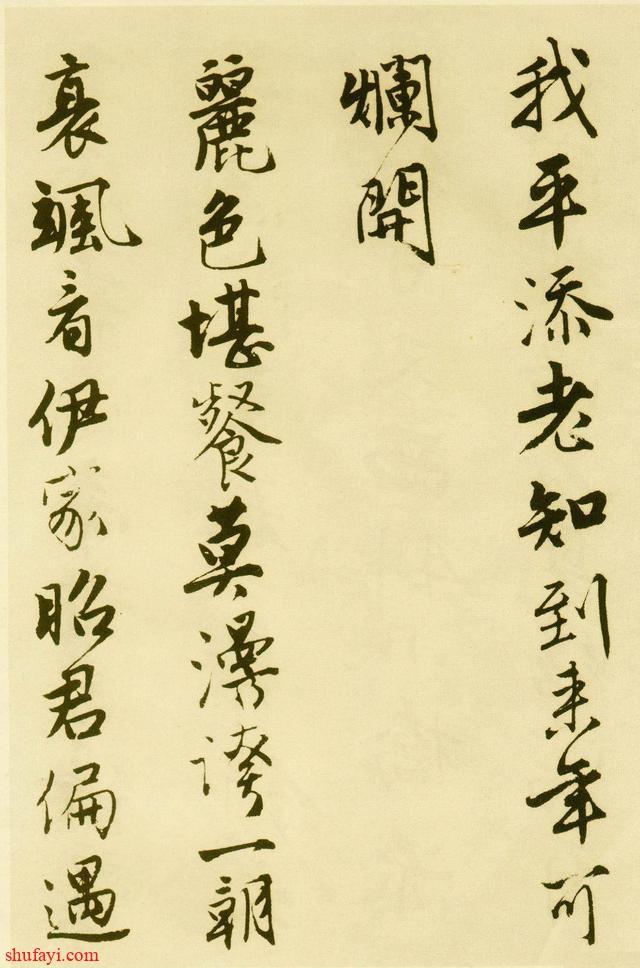 我平添老知到来年可
爛開
麗色堪餐莫漫誇一朝
衰颯看伊家昭君偏遇
shufayi.com